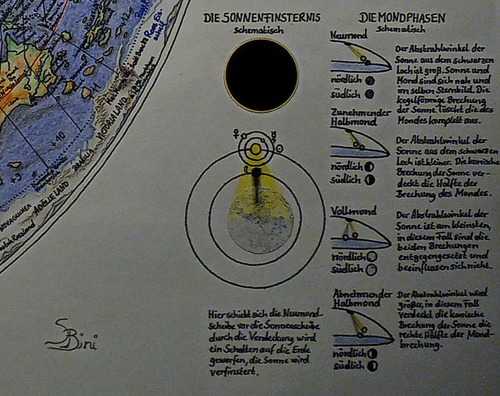 DIE SONNENFINSTERNIS
schematisch
Hier schiebt sich die Neumond-
scheibe vor die Sonnenscheibe
durch die Verdeckung wird
ein Schatten auf die Erde
geworfen, die Sonne wird
verfinstert.
DIE MONDPHASEN
Schematisch
Neumond
nördlich
südlich
Der Abstrahlwinkel der
Sonne aus dem schwarzen
Loch ist groß. Sonne und
Mond sind sich nah und
im selben Sternbild. Die
kegelförmige Brechung
der Sonne löscht die des
Mondes komplett aus.
Zunehmender
Halbmond
nördlich
südlich
Der Abstrahlwinkel der
Sonne aus dem schwarzen
Loch ist kleiner. Die konische
Brechung der Sonne ver-
deckt die Hälfte der
Brechung des Mondes.
Vollmond
nördlich
südlich
Der Abstrahlwinkel der
Sonne ist am kleinsten,
in diesem Fall sind die
beiden Brechungen
entgegengesetzt und
beeinflussen sich nicht.
Abnehmender
Halbmond
nördlich
südlich
Der Abstrahlwinkel wird
größer, in diesem Fall
verdeckt die konische
Brechung der Sonne die
rechte Hälfte der Mond-
brechung.
VICTORIALAND
ADÉLIE LAND
+10
SBini